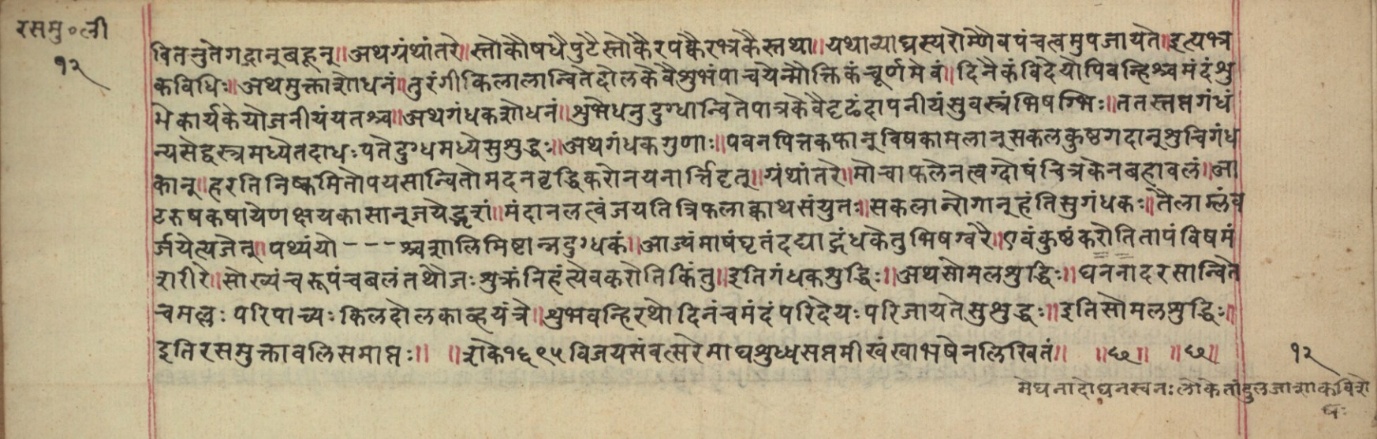 रसमु॰ली
१२
वितनुतेगदान्बहून्॥अथग्रंथांतरे॥स्तोकौषधैपुटैस्तोकैरपक्वैरभ्रकैस्तथा॥यथाव्याघ्रस्यरोम्णैवपंचत्वमुपजायते॥इत्यभ्र
कविधिः॥अथमुक्ताशोधनं॥तुरंगीकिलालान्वितेदोलकेवैशुभंपाचयेन्मौक्तिकंचूर्णमेवं॥दिनैकंविदेयोपिवन्हिश्चमंदंशु
भेकार्यकेयोजनीयंयतश्च॥अथगंधकशोधनं॥शुभेधेनुदुग्धान्वितेपात्रकेवैदृढंदापनीयंसुवस्त्रंभिषग्भिः॥ततस्तप्तगंधं
न्यसेद्वस्त्रमध्येतदाधःपतेदुग्धमध्येसुशुद्धः॥अथगंधकगुणाः॥पवनपित्तकफान्विषकामलान्सकलकुष्ठगदान्शुचिगंध
कान्॥हरतिनिष्कमितोपयसान्वितोमदनवृद्धिकरोनयनार्त्तिहृत्॥ग्रंथांतरे॥मोचाफलेनत्वग्दोषंचित्रकेनबहाबलं॥आ
टरुषकषायेणक्षयकासान्जयेद्भृशं॥मंदानलत्वंजयतित्रिफलाक्वाथसंयुतः॥सकलान्रोगान्हंतिसुगंधकः॥तैलाम्लंव
र्जयेत्यजेत्॥पथ्यंयो---श्चशालिमिष्टान्नदुग्धकं॥आज्यंमाषंघृतंदद्याद्गंधकेतुभिषग्वरै॥एवंकुष्ठंकरोतितापंविषमं
शरीरे॥सौख्यंचरूपंचबलंतथौजःशुक्रंनिहंत्येवकरोतिकिंतु॥इतिगंधकशुद्धिः॥अथसोमलशुद्धिः॥घननादरसान्विते
चमल्लःपरिपाच्यःकिलदोलकाव्हयंत्रे॥शुभवन्हिरथोदिनंचमंदंपरिदेयःपरिजायतेसुशुद्धः॥इतिसोमलशुद्धिः॥
इतिरसमुक्तावलिसमाप्तः॥ ॥शके१६९५विजयसंवत्सरेमाघशुध्धसप्तमीखंखाभषेनलिखितं॥ ॥छ॥ ॥छ॥
१२
मेघनादोघनस्वनःलोकेतांदुलजाशाकविशे
षः